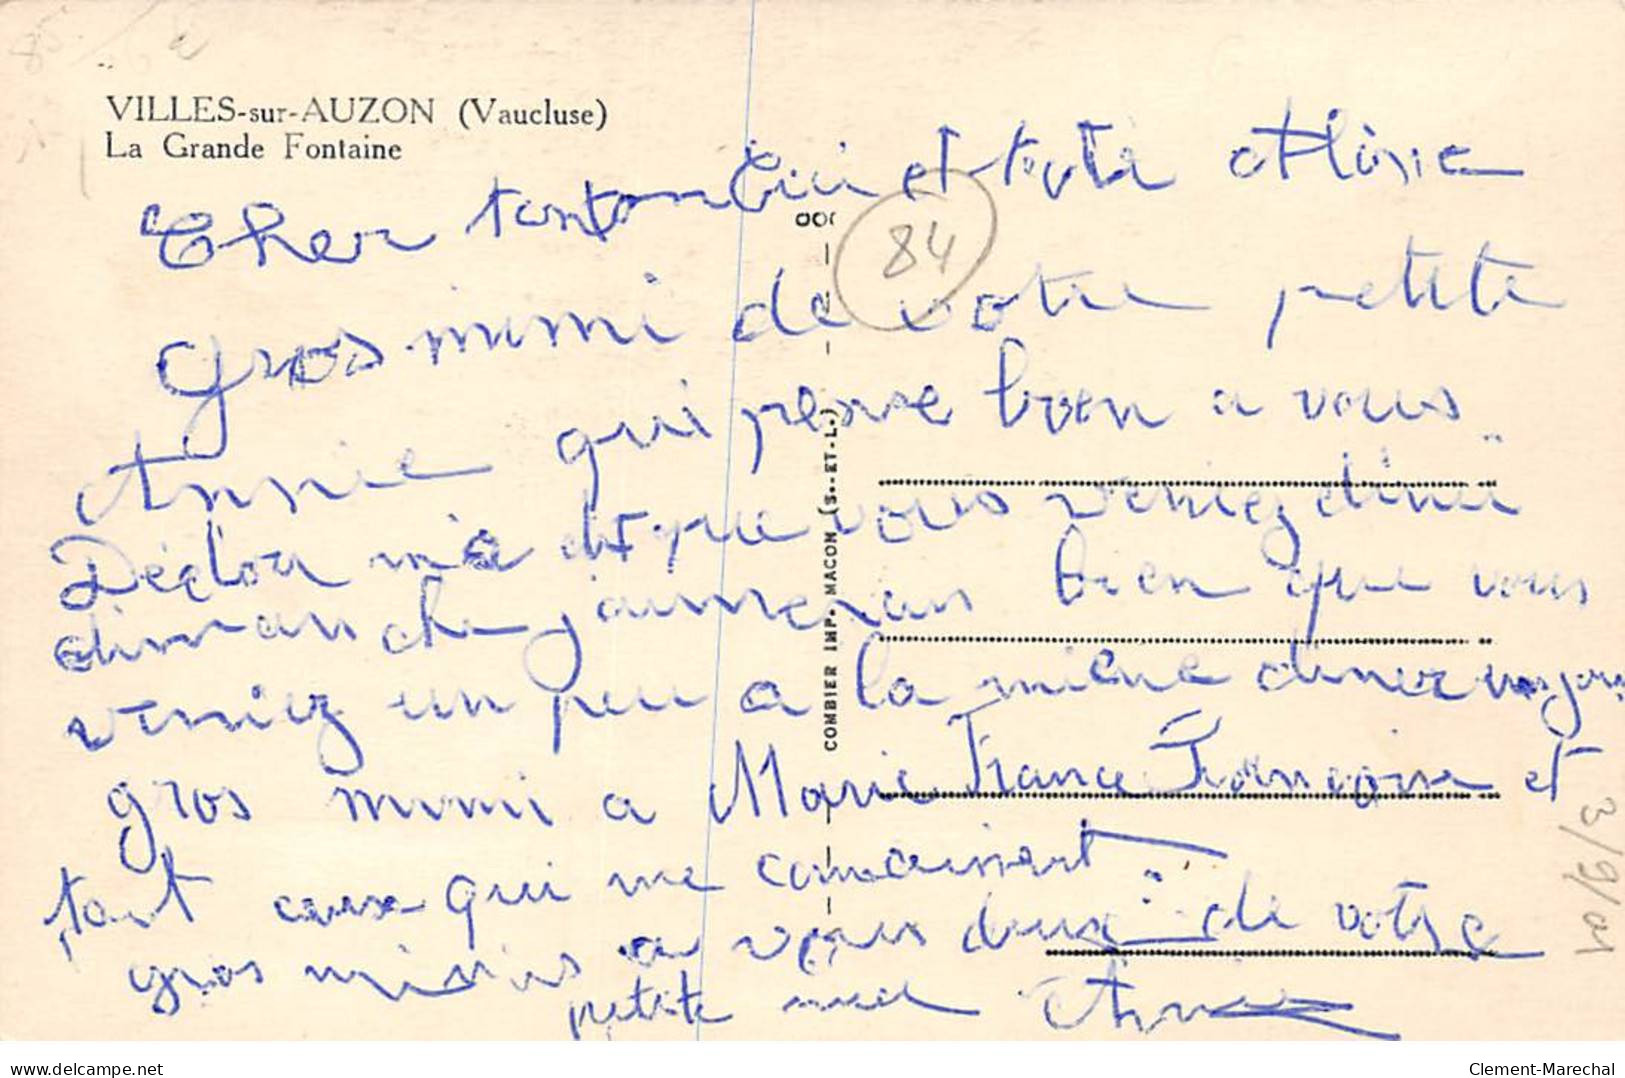 VILLES-sur-AUZON (Vaucluse)
La Grande Fontaine
Cher tonton et tata
Gros mimi de votre petite
84
Annie qui pense bien a vous
dit que vous veniez diner
dimanche j'aimerais bien que vous
veniez un peu a la mienne diner
gros mimi a Marie France Francoise et
tout ceux qui me connaissent
gros mimis a vous deux de votre
petite Annie
COMBIER IMP. MACON (S.-ET-L.)
3/9/01
delcampe.net
Clement-Marechal